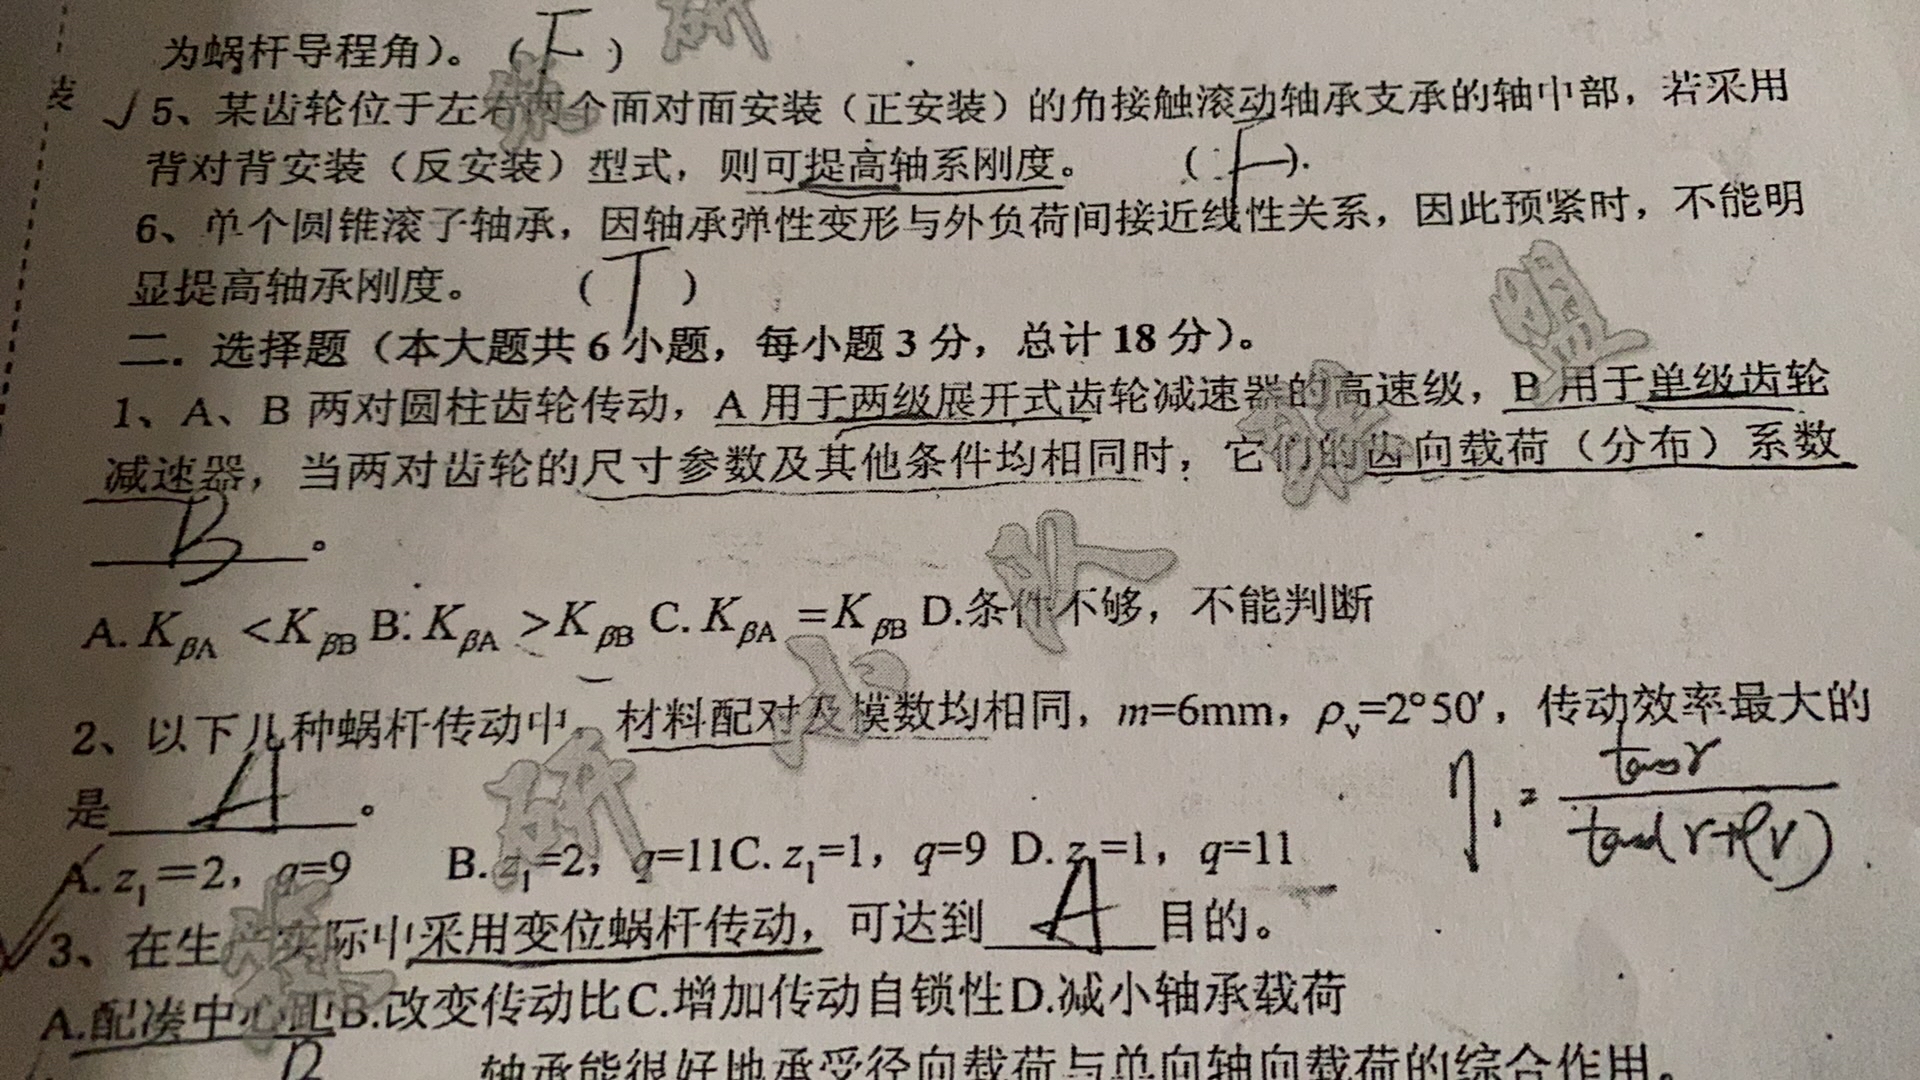 为蜗杆导程角）。（F）
装
√5、某齿轮位于左右两个面对面安装（正安装）的角接触滚动轴承支承的轴中部，若采用
背对背安装（反安装）型式，则可提高轴系刚度。（F）.
6、单个圆锥滚子轴承，因轴承弹性变形与外负荷间接近线性关系，因此预紧时，不能明
显提高轴承刚度。（T）
二. 选择题（本大题共6小题，每小题3分，总计18分）。
1、A、B两对圆柱齿轮传动，A用于两级展开式齿轮减速器的高速级，B用于单级齿轮
减速器，当两对齿轮的尺寸参数及其他条件均相同时，它们的齿向载荷（分布）系数
B。
A. KβA <KβB B. KβA >KβB C. KβA =KβB D.条件不够，不能判断
2、以下几种蜗杆传动中，材料配对及模数均相同，m=6mm，ρv=2°50′，传动效率最大的
是 A。
η1 = tanγ / tan(γ+ρv)
A. z1=2，q=9 B. z1=2，q=11C. z1=1，q=9 D. z1=1，q=11
3、在生 实际中采用变位蜗杆传动，可达到 A 目的。
A.配凑中心距B.改变传动比C.增加传动自锁性D.减小轴承载荷
轴承能很好地承受径向载荷与单向轴向载荷的综合作用。